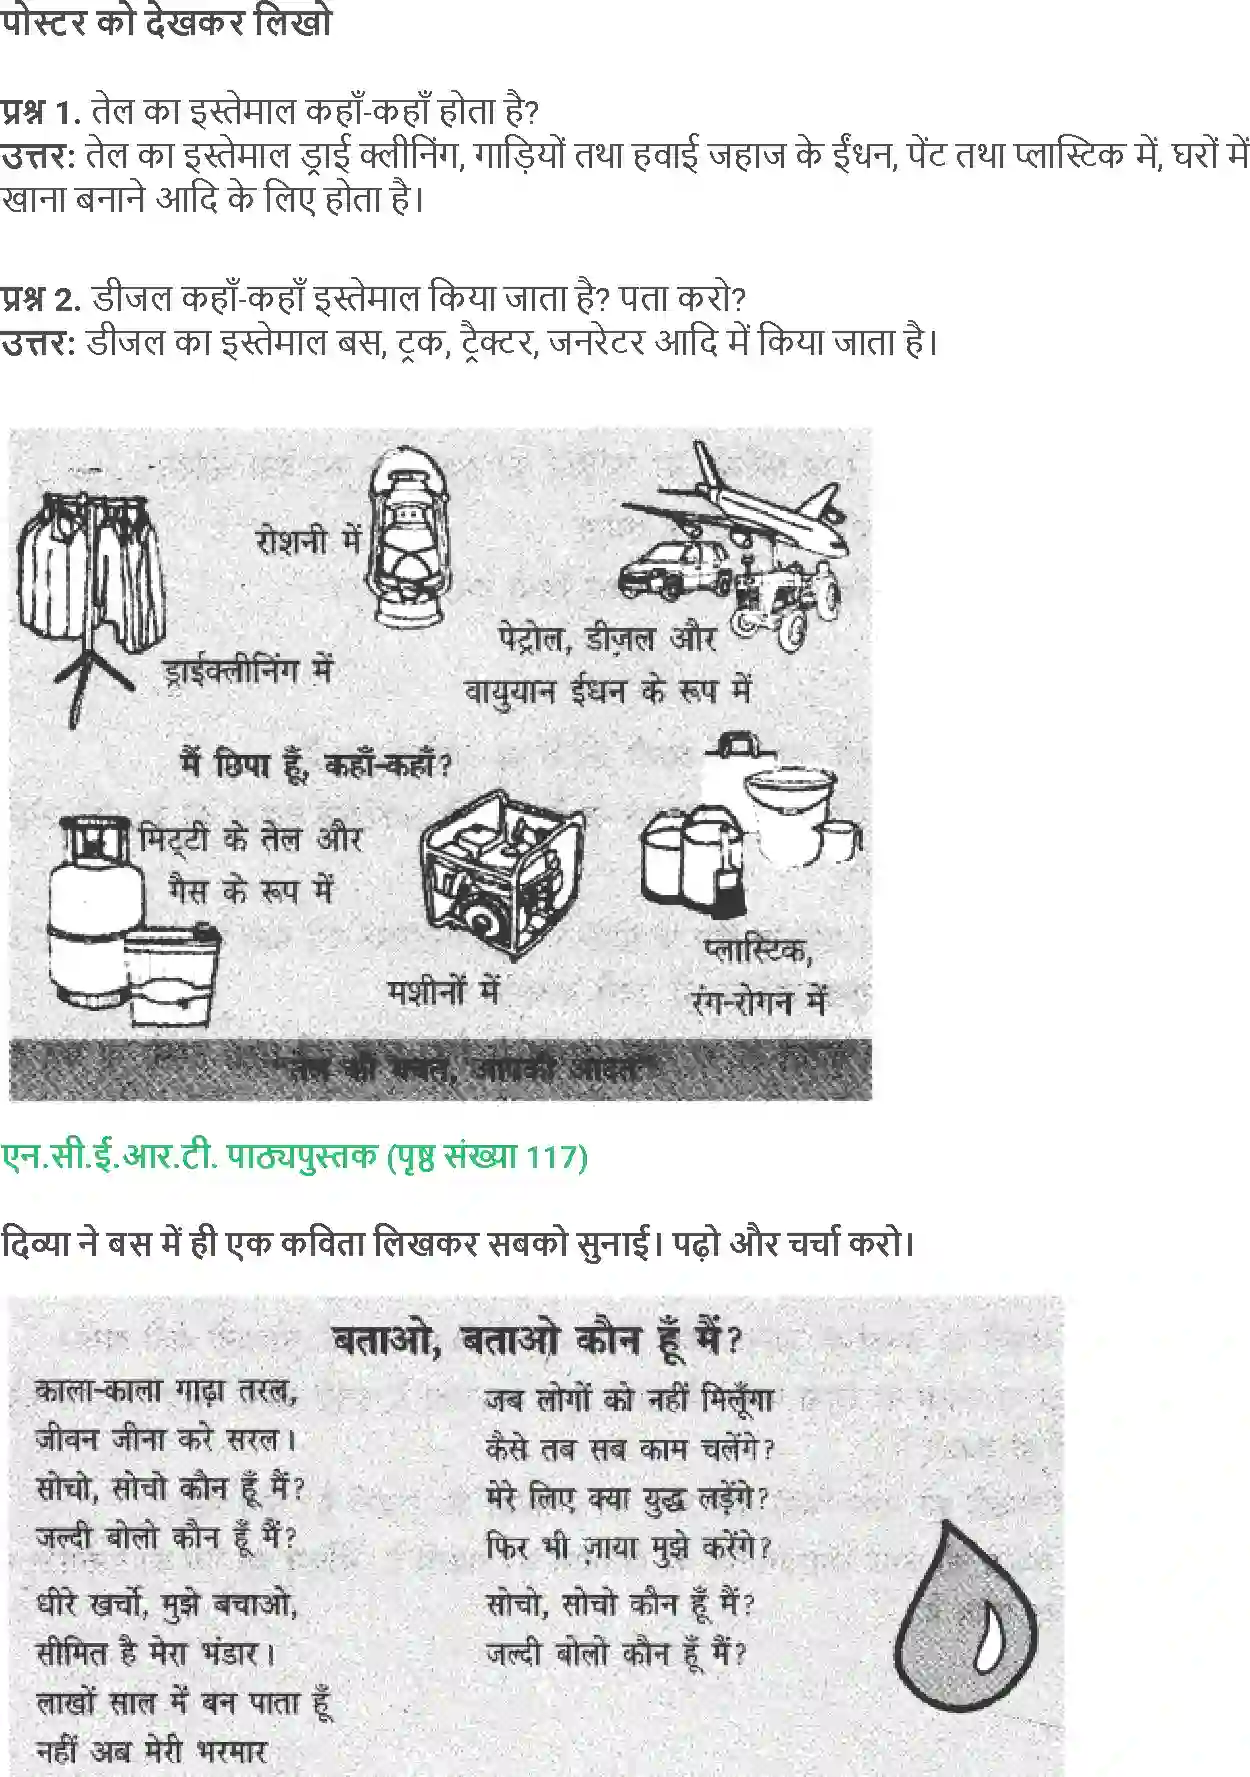 पोस्टर को देखकर लिखो
प्रश्न 1. तेल का इस्तेमाल कहाँ-कहाँ होता है?
उत्तर: तेल का इस्तेमाल ड्राई क्लीनिंग, गाड़ियों तथा हवाई जहाज के ईंधन, पेंट तथा प्लास्टिक में, घरों में
खाना बनाने आदि के लिए होता है।
प्रश्न 2. डीजल कहाँ-कहाँ इस्तेमाल किया जाता है? पता करो?
उत्तर: डीजल का इस्तेमाल बस, ट्रक, ट्रैक्टर, जनरेटर आदि में किया जाता है।
रोशनी में
पेट्रोल, डीज़ल और
वायुयान ईधन के रूप में
ड्राईक्लीनिंग में
मैं छिपा हूँ, कहाँ-कहाँ?
मिट्टी के तेल और
गैस के रूप में
मशीनों में
प्लास्टिक,
रंग-रोगन में
"तेल की बचत, आपकी आदत"
एन.सी.ई.आर.टी. पाठ्यपुस्तक (पृष्ठ संख्या 117)
दिव्या ने बस में ही एक कविता लिखकर सबको सुनाई। पढ़ो और चर्चा करो।
बताओ, बताओ कौन हूँ मैं?
काला-काला गाढ़ा तरल,
जीवन जीना करे सरल।
सोचो, सोचो कौन हूँ मैं?
जल्दी बोलो कौन हूँ मैं?
धीरे खर्चो, मुझे बचाओ,
सीमित है मेरा भंडार।
लाखों साल में बन पाता हूँ
नहीं अब मेरी भरमार
जब लोगों को नहीं मिलूँगा
कैसे तब सब काम चलेंगे?
मेरे लिए क्या युद्ध लड़ेंगे?
फिर भी ज़ाया मुझे करेंगे?
सोचो, सोचो कौन हूँ मैं?
जल्दी बोलो कौन हूँ मैं?